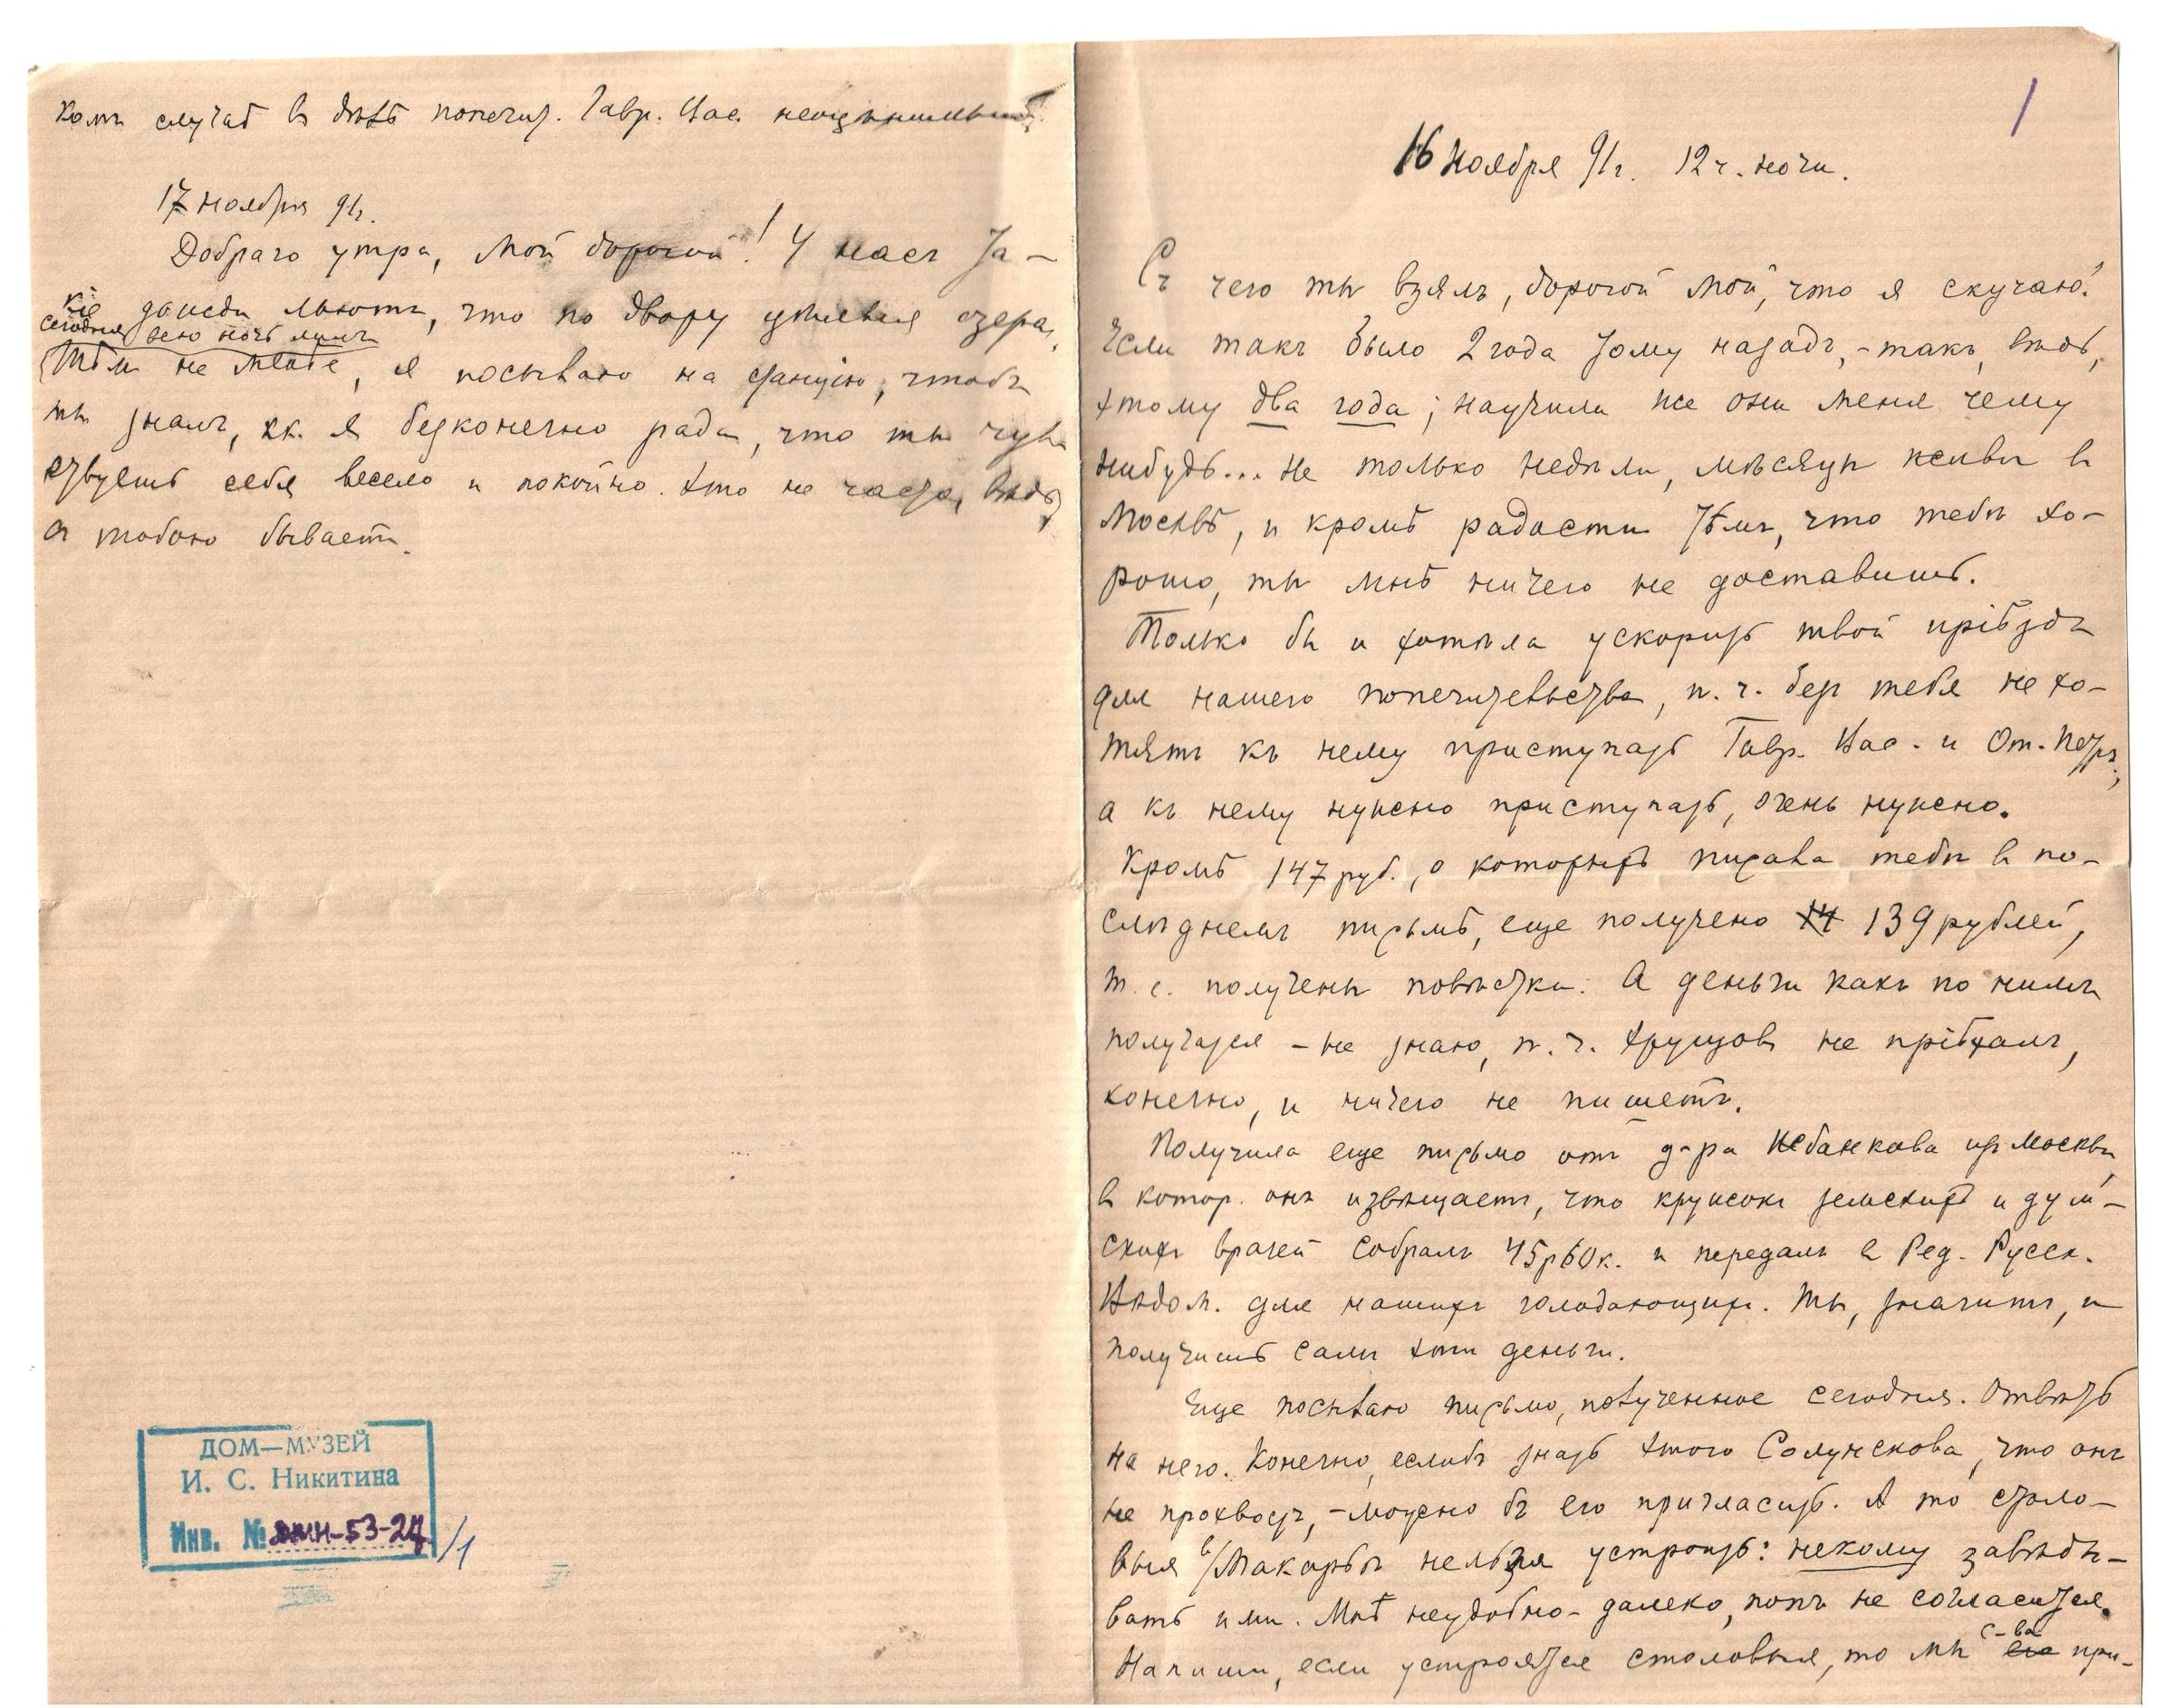 комъ случаѣ въ дѣлѣ попечит. Гавр. Вас. неоцѣнимый.
17 ноября 91г.
Добраго утра, мой дорогой! У насъ та-
кіе дожди льютъ, что по двору цѣлыя озера,
сегодня всю ночь лилъ
Тѣмъ не менѣе, я посылаю на станцію, чтобъ
ты зналъ, кк. я безконечно рада, что ты чув-
ствуешь себя весело и покойно. Это не часто, вѣдь,
съ тобою бываетъ.
ДОМ—МУЗЕЙ
И. С. Никитина
Инв. № ДМН-53-24/1
1
16 Ноября 91г. 12 ч. ночи.
Съ чего ты взялъ, дорогой мой, что я скучаю!
Если такъ было 2 года тому назадъ, - такъ, вѣдь,
этому два года; научили же они меня чему
нибудь... Не только недѣли, мѣсяцы живи въ
Москвѣ, и кромѣ радости тѣмъ, что тебѣ хо-
рошо, ты мнѣ ничего не доставишь.
Только бы и хотѣла ускорить твой пріѣздъ
для нашего попечительства, п. ч. безъ тебя не хо-
тятъ къ нему приступать Гавр. Вас. и От. Петръ,
а къ нему нужно приступать, очень нужно.
Кромѣ 147 руб., о которыхъ писала тебѣ въ по-
слѣднемъ письмѣ, еще получено 14 139 рублей,
т. е. получены повѣстки. А деньги какъ по нимъ
получатся - не знаю, п. ч. Хрущовъ не пріѣхалъ,
конечно, и ничего не пишетъ.
Получила еще письмо отъ д-ра Жбанкова изъ Москвы,
въ котор. онъ извѣщаетъ, что кружокъ земскихъ и дум-
скихъ врачей собралъ 45р60к. и передалъ въ Ред. Русск.
Вѣдом. для нашихъ голодающихъ. Ты, значитъ, и
получишь самъ эти деньги.
Еще посылаю письмо, полученное сегодня. Отвѣть
на него. Конечно, еслибъ знать этого Солунскова, что онъ
не прохвостъ, - можно бъ его пригласить. А то столо-
выя въ Макарьѣ нельзя устроить: некому завѣды-
вать ими. Мнѣ неудобно - далеко, попъ не согласится.
с-ва
Напиши, если устроятся столовыя, то мы его при-